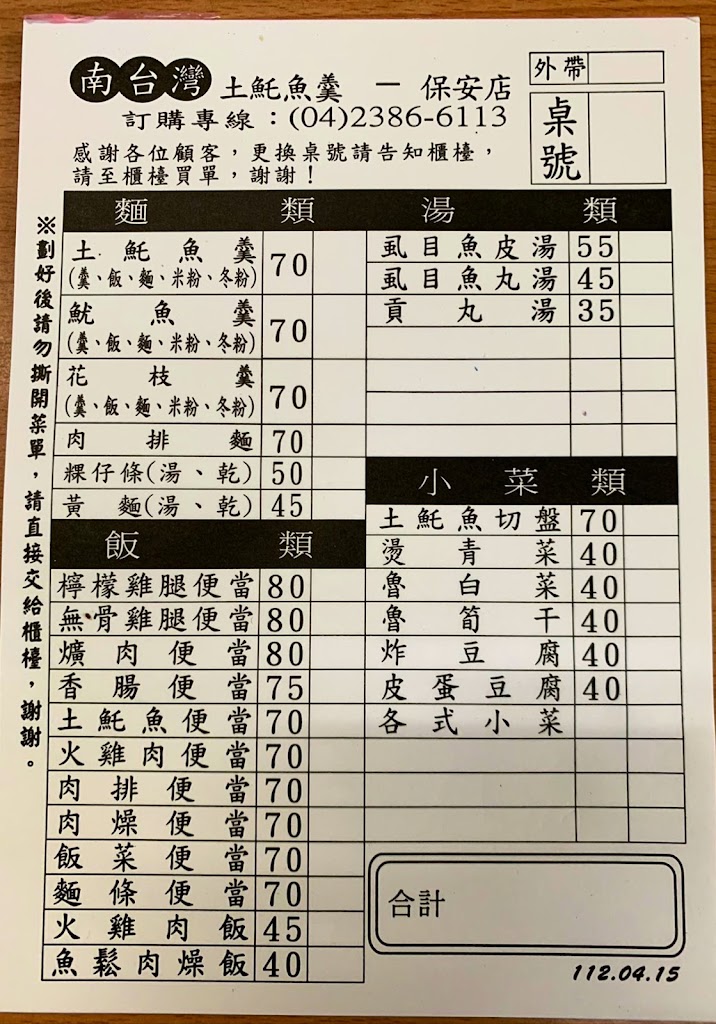 南台灣 土魠魚羹 － 保安店
外帶
訂購專線：(04)2386-6113
桌號
感謝各位顧客，更換桌號請告知櫃檯，
請至櫃檯買單，謝謝！
※劃好後請勿撕開菜單，請直接交給櫃檯，謝謝。
麵類
土魠魚羹 70
(羹、飯、麵、米粉、冬粉)
魷魚羹 70
(羹、飯、麵、米粉、冬粉)
花枝羹 70
(羹、飯、麵、米粉、冬粉)
肉排麵 70
粿仔條(湯、乾) 50
黃麵(湯、乾) 45
飯類
檸檬雞腿便當 80
無骨雞腿便當 80
爌肉便當 80
香腸便當 75
土魠魚便當 70
火雞肉便當 70
肉排便當 70
肉燥便當 70
飯菜便當 70
麵條便當 70
火雞肉飯 45
魚鬆肉燥飯 40
湯類
虱目魚皮湯 55
虱目魚丸湯 45
貢丸湯 35
小菜類
土魠魚切盤 70
燙青菜 40
魯白菜 40
魯筍干 40
炸豆腐 40
皮蛋豆腐 40
各式小菜
合計
112.04.15